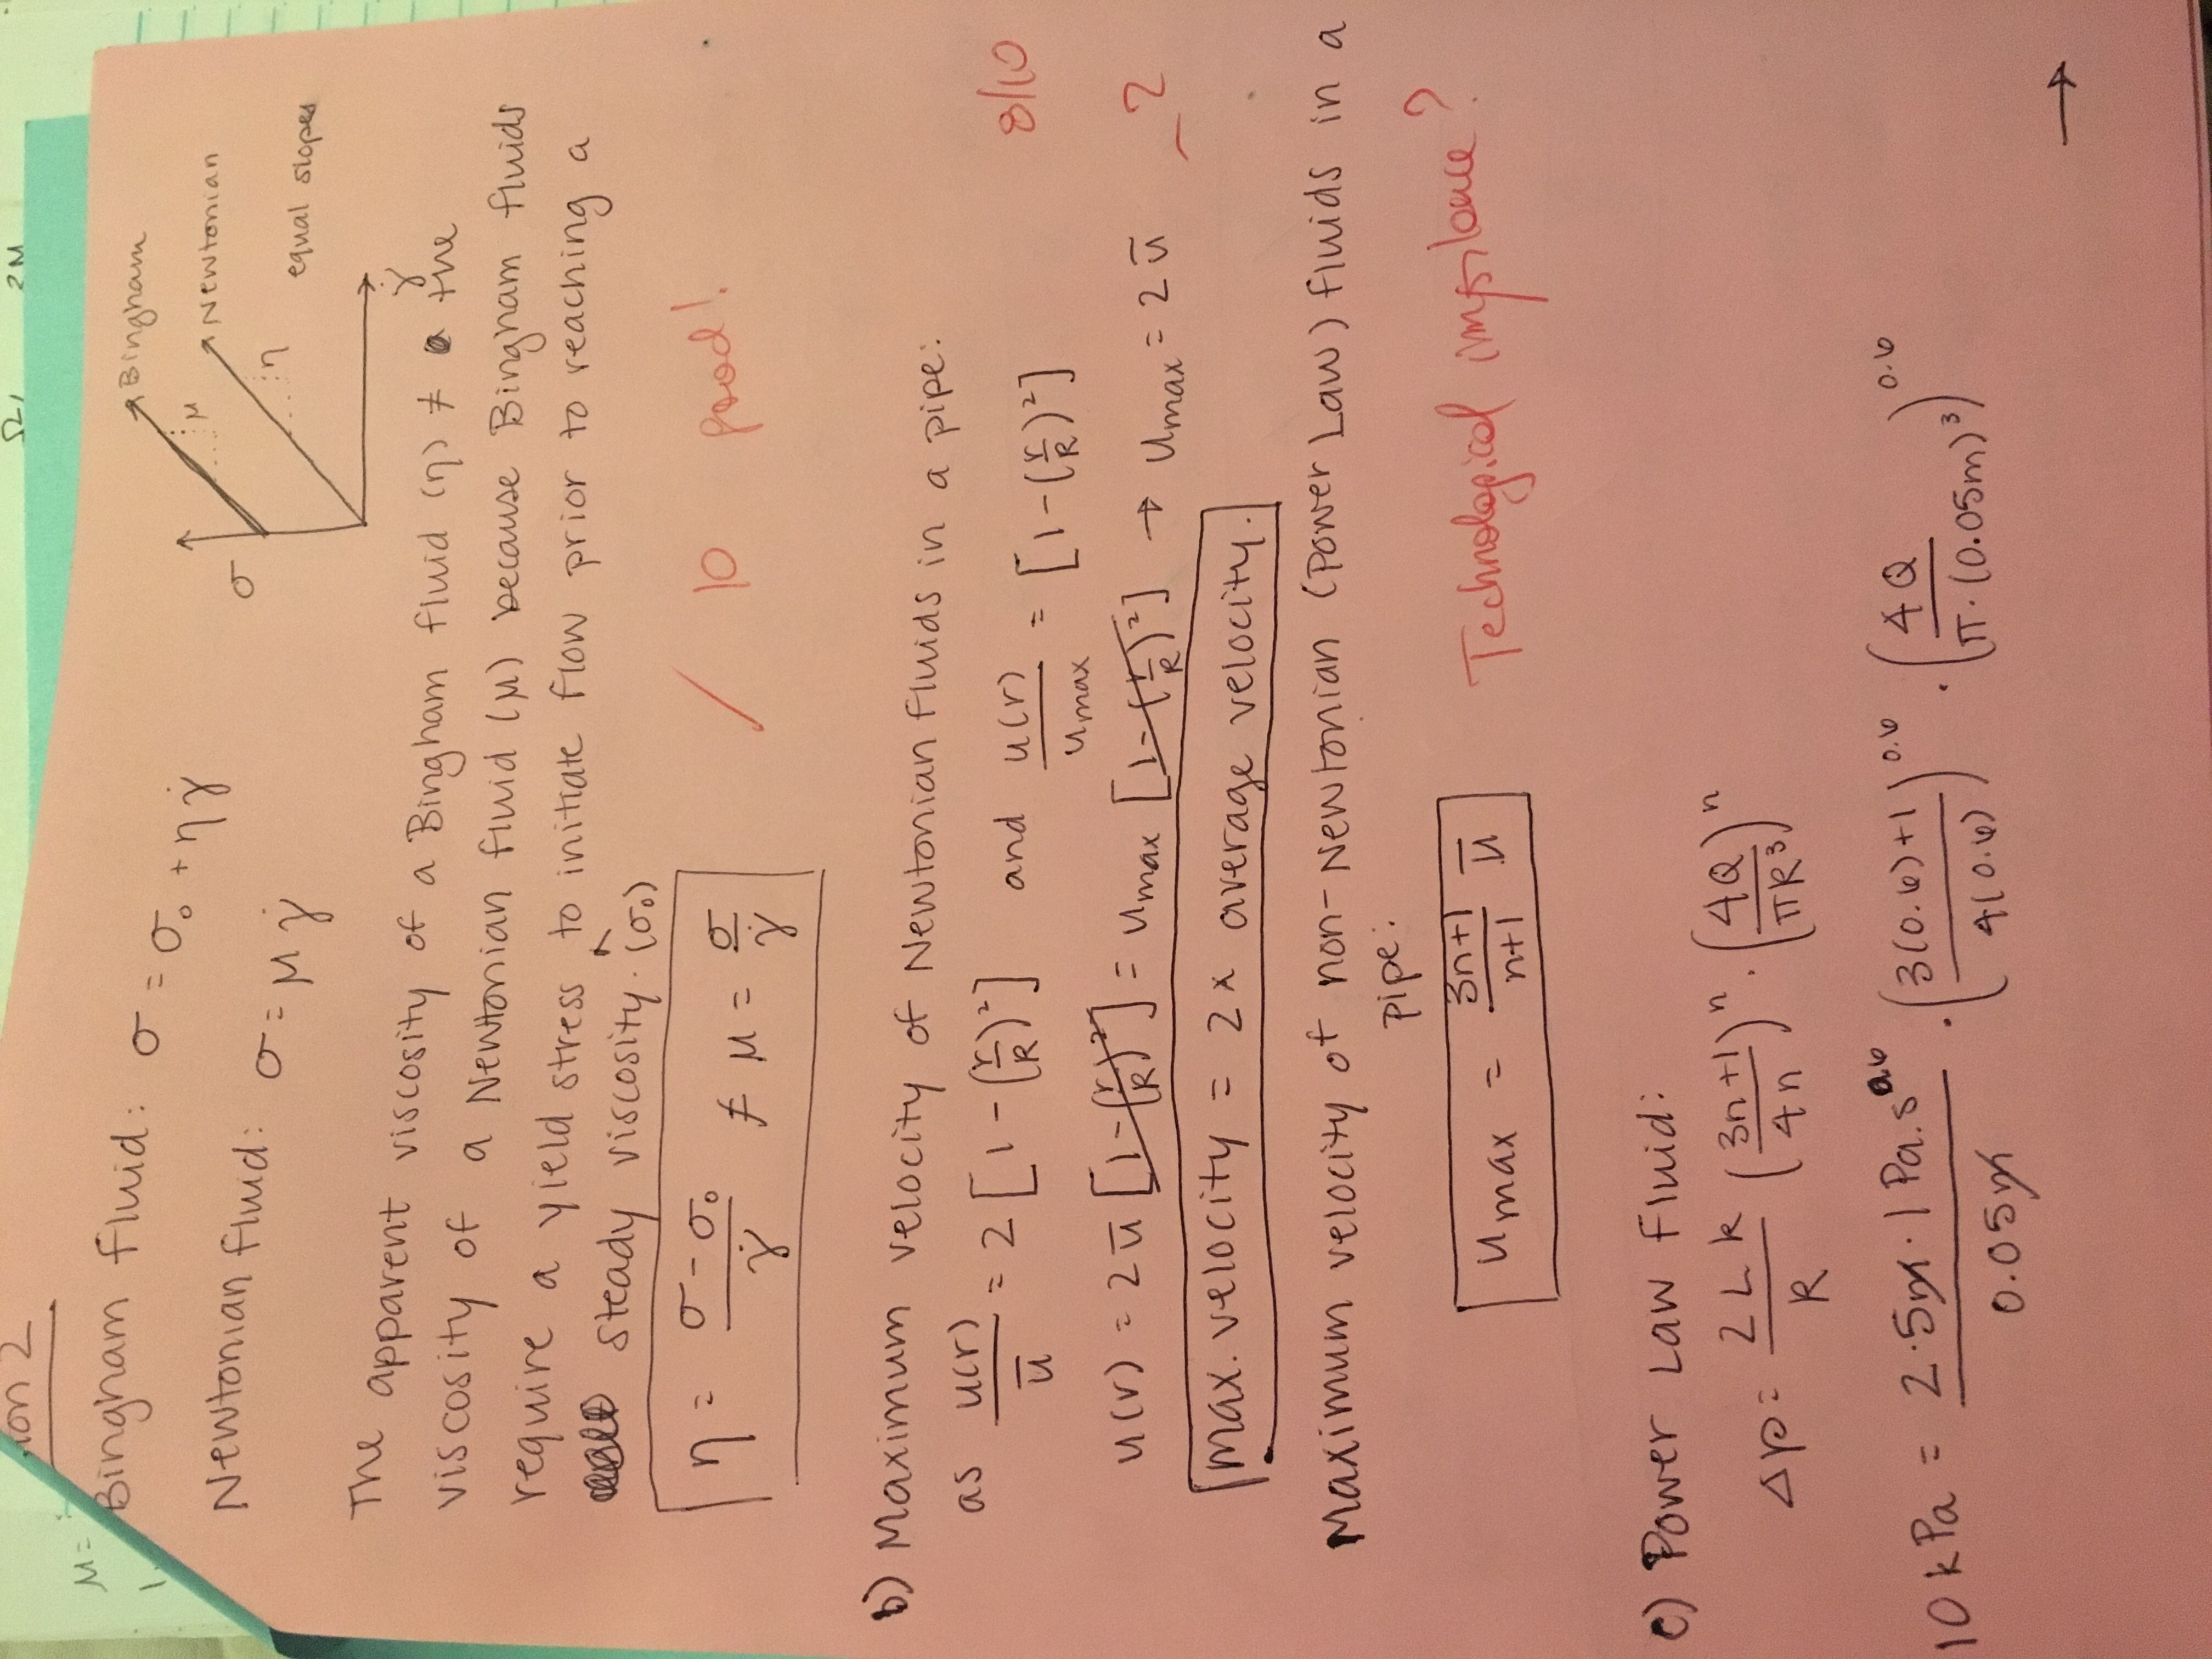 ion 2
Ω, 2M
μ=
1.
Bingham fluid: σ = σ₀ + ηγ̇
Newtonian fluid: σ = μγ̇
Bingham
μ
Newtonian
η
σ
equal slopes
γ̇
The apparent viscosity of a Bingham fluid (η) ≠ the
viscosity of a Newtonian fluid (μ) because Bingham fluids
require a yield stress to initiate flow prior to reaching a
steady viscosity. (σ₀)
η = (σ - σ₀)/γ̇ ≠ μ = σ/γ̇
/ 10 good!
b) Maximum velocity of Newtonian fluids in a pipe:
as u(r)/ū = 2 [1 - (r/R)²] and u(r)/umax = [1 - (r/R)²]
8/10
u(r) = 2ū [1 - (r/R)²] = umax [1 - (r/R)²] → umax = 2ū
-2
max. velocity = 2x average velocity.
Maximum velocity of non-Newtonian (Power Law) fluids in a
pipe:
umax = (3n+1)/(n+1) ū
Technological importance?
c) Power Law Fluid:
Δp = 2Lk/R (3n+1/4n)ⁿ · (4Q/πR³)ⁿ
10 kPa = 2·5m·1 Pa.s^0.6/0.05m · (3(0.6)+1/4(0.6))^0.6 · (4Q/π·(0.05m)³)^0.6
→